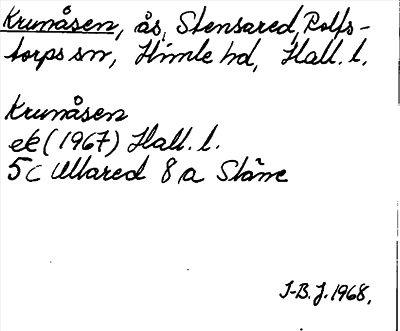 Krumåsen, ås, Stensared, Rolfs-
torps sn, Himle hd, Hall. l.
Krumåsen
ek (1967) Hall. l.
5c Ullared 8 a Stäme
J-B. J. 1968.